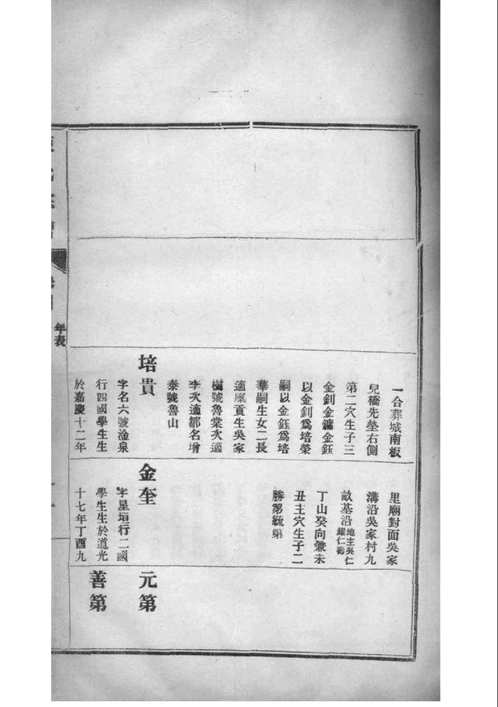 一合葬城南板
兒橋先塋右側
第二穴生子三
金釗金鏞金鈺
以金釗爲培榮
嗣以金鈺爲培
華嗣生女二長
適貢生吳家
樹號魯棠次適
李次適鄒名增
泰號魯山
培貴
字名六號瀹泉
行四國學生生
於嘉慶十二年
里廟對面吳家
溝沿吳家村九
畝基沿地主吳仁
耀仁壽
丁山癸向兼未
丑主穴生子二
勝第毓第
金奎
字星垣行二國
學生生於道光
十七年丁酉九
元第
善第
年表